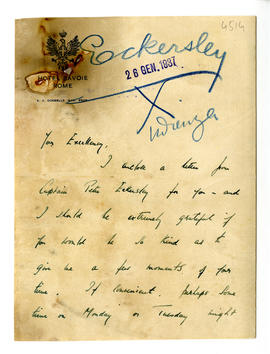 4514
Cockersley
HOTEL SAVOIE
ROME
26 GEN. 1937
Udienza
Your Excellency,
I enclose a letter from
Captain Peter Eckersley for you – and
I should be extremely grateful if
you would be so kind as to
give me a few moments of your
time. If convenient. Perhaps some
time on Monday or Tuesday might